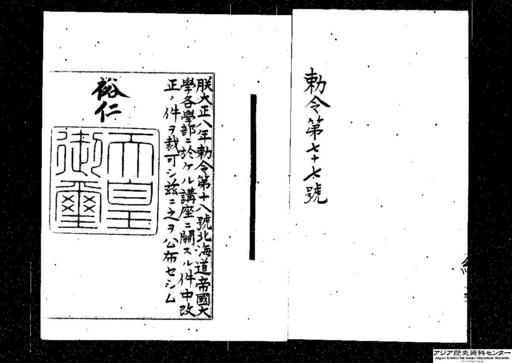 勅令第七十七號
朕大正八年勅令第十八號北海道帝國大
學各學部ニ於ケル講座ニ關スル件中改
正ノ件ヲ裁可シ茲ニ之ヲ公布セシム
裕仁
天皇
御璽
アジア歴史資料センター
Japan Center for Asian Historical Records